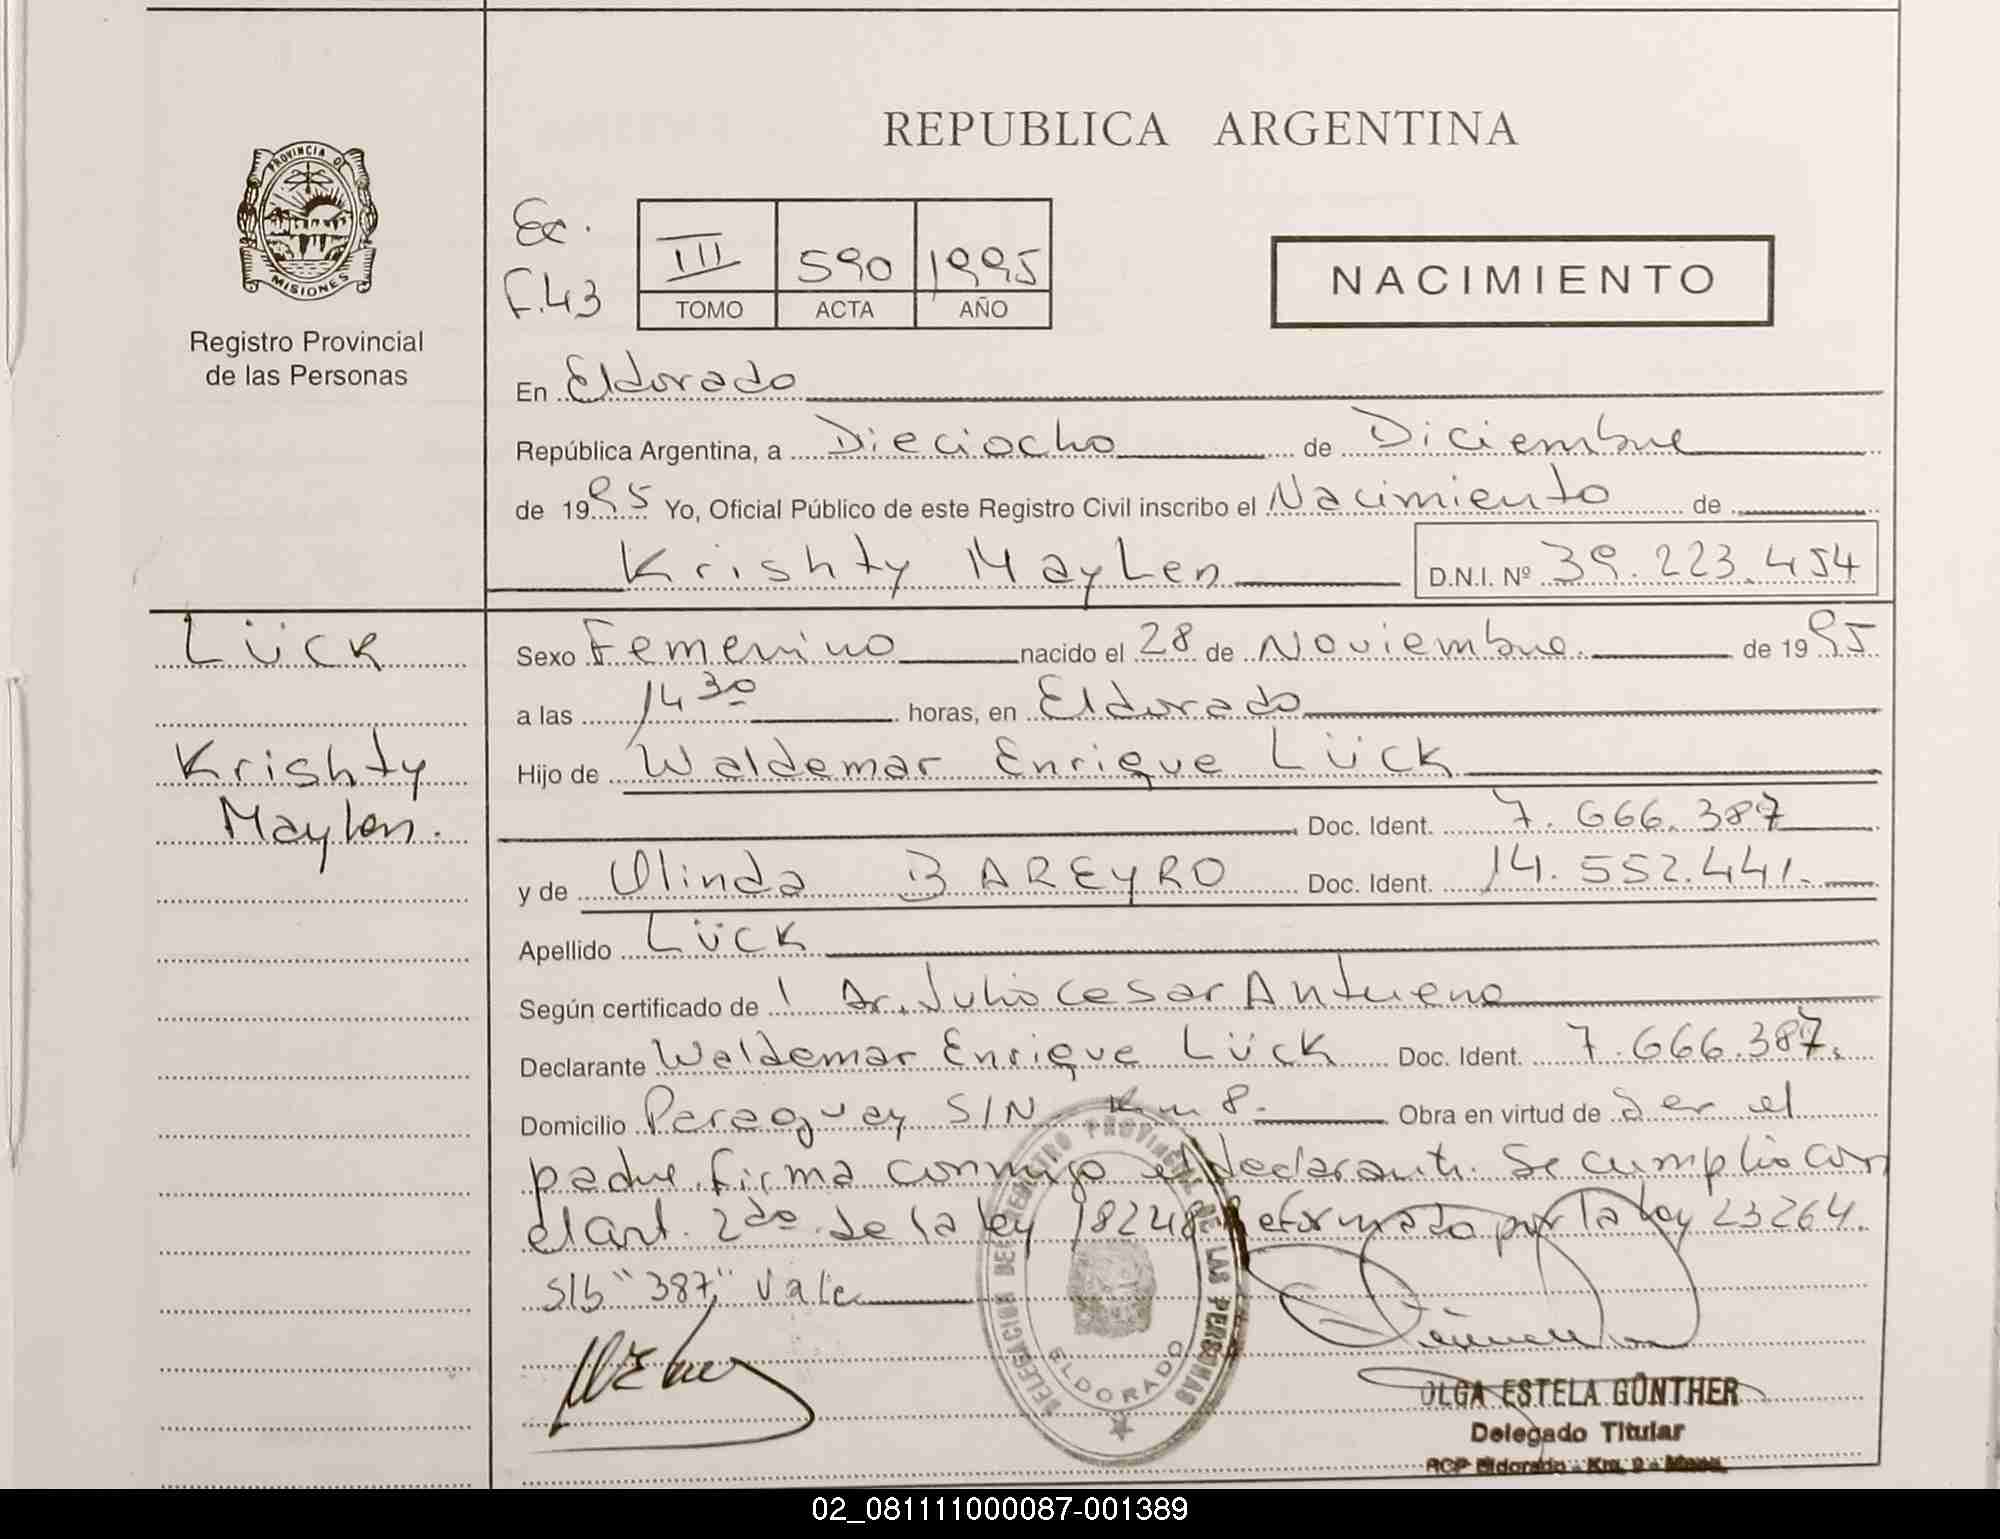 REPUBLICA ARGENTINA
PROVINCIA D
MISIONES
Registro Provincial
de las Personas
Ex.
F.43
III 590 1995
TOMO ACTA AÑO
NACIMIENTO
En Eldorado
República Argentina, a Dieciocho de Diciembre
de 1995 Yo, Oficial Público de este Registro Civil inscribo el Nacimiento de
Krishty Maylen D.N.I. Nº 39.223.454
Lück
Krishty
Maylen.
Sexo Femenino nacido el 28 de Noviembre de 1995
a las 14 30 horas, en Eldorado
Hijo de Waldemar Enrique Lück
Doc. Ident. 7.666.387
y de Olinda BAREYRO Doc. Ident. 14.552.441.
Apellido Lück
Según certificado de Dr. Julio Cesar Antueno
Declarante Waldemar Enrique Lück Doc. Ident. 7.666.387.
Domicilio Paraguay S/N Km 8. Obra en virtud de ser el
padre firma conmigo el declarante. Se cumplio con
el art. 2do de la ley 18248 Reformado por la ley 23264.
S/b "387" Vale
DELEGACION DEL REGISTRO PROVINCIAL DE LAS PERSONAS
ELDORADO
OLGA ESTELA GÜNTHER
Delegado Titular
RCP Eldorado - Km. 9 - Mnes.
02_081111000087-001389